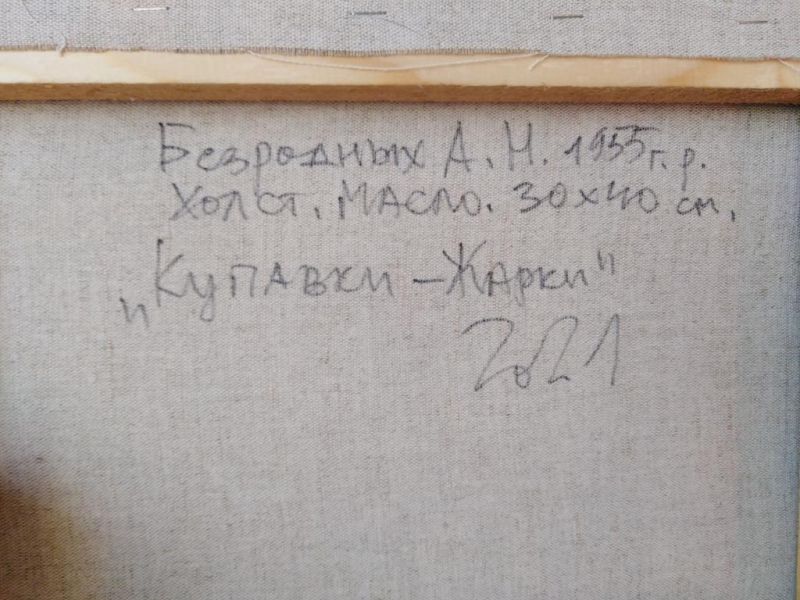 Безродных А. Н. 1955 г. р.
Холст. Масло. 30х40 см.
„Купавки – Жарки"
2021